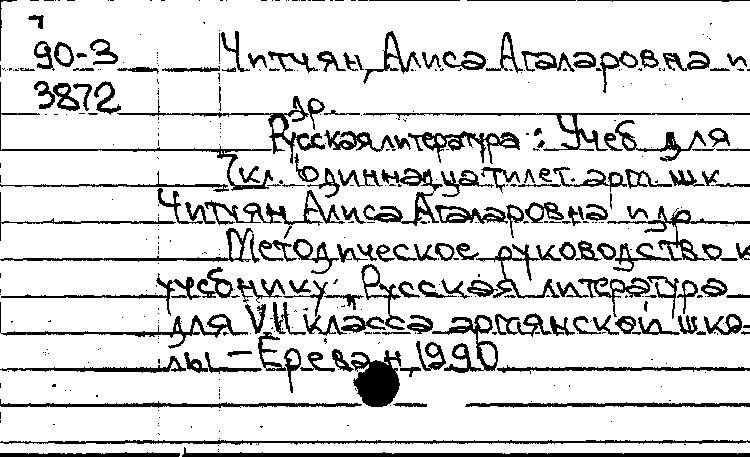 90-3
3872
Читчян, Алиса Агаларовна и
др.
Русская литература : Учеб для
7 кл. одиннадцатилет. арм. шк
Читчян, Алиса Агаларовна и др.
Методическое руководство к
учебнику "Русская литература
для VII класса армянской шко-
лы – Ереван, 1990